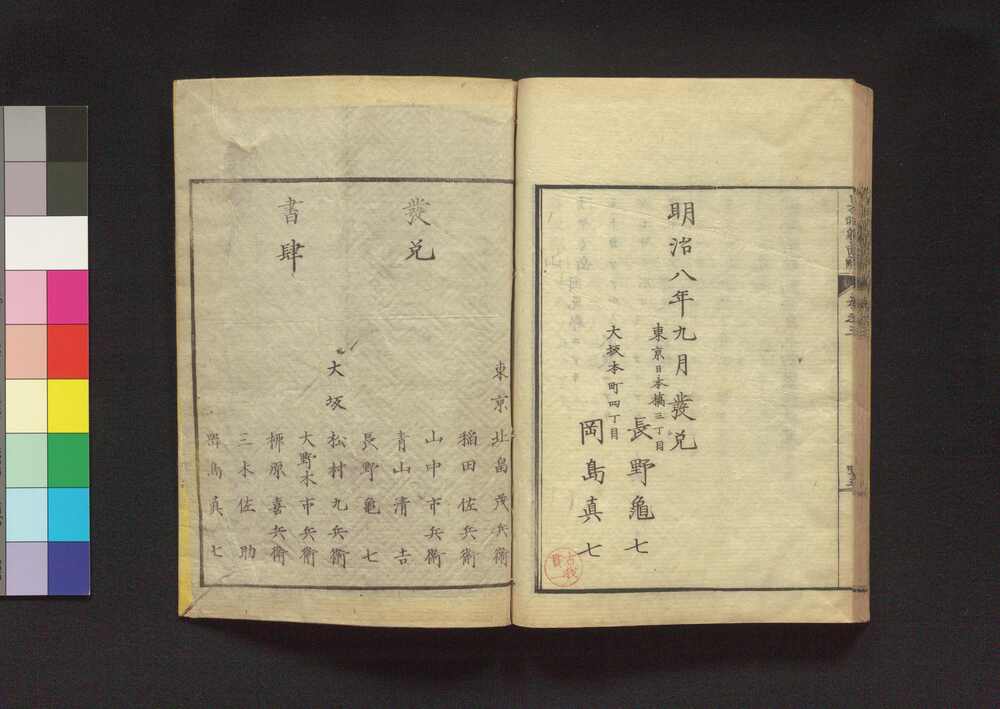 明治八年九月發兌
東京日本橋三丁目
長野龜七
大坂本町四丁目
岡島真七
發兌
書肆
東京
北畠茂兵衛
稲田佐兵衛
山中市兵衛
青山清吉
長野龜七
大坂
松村九兵衛
大野木市兵衛
栁原喜兵衛
三木佐助
岡島真七